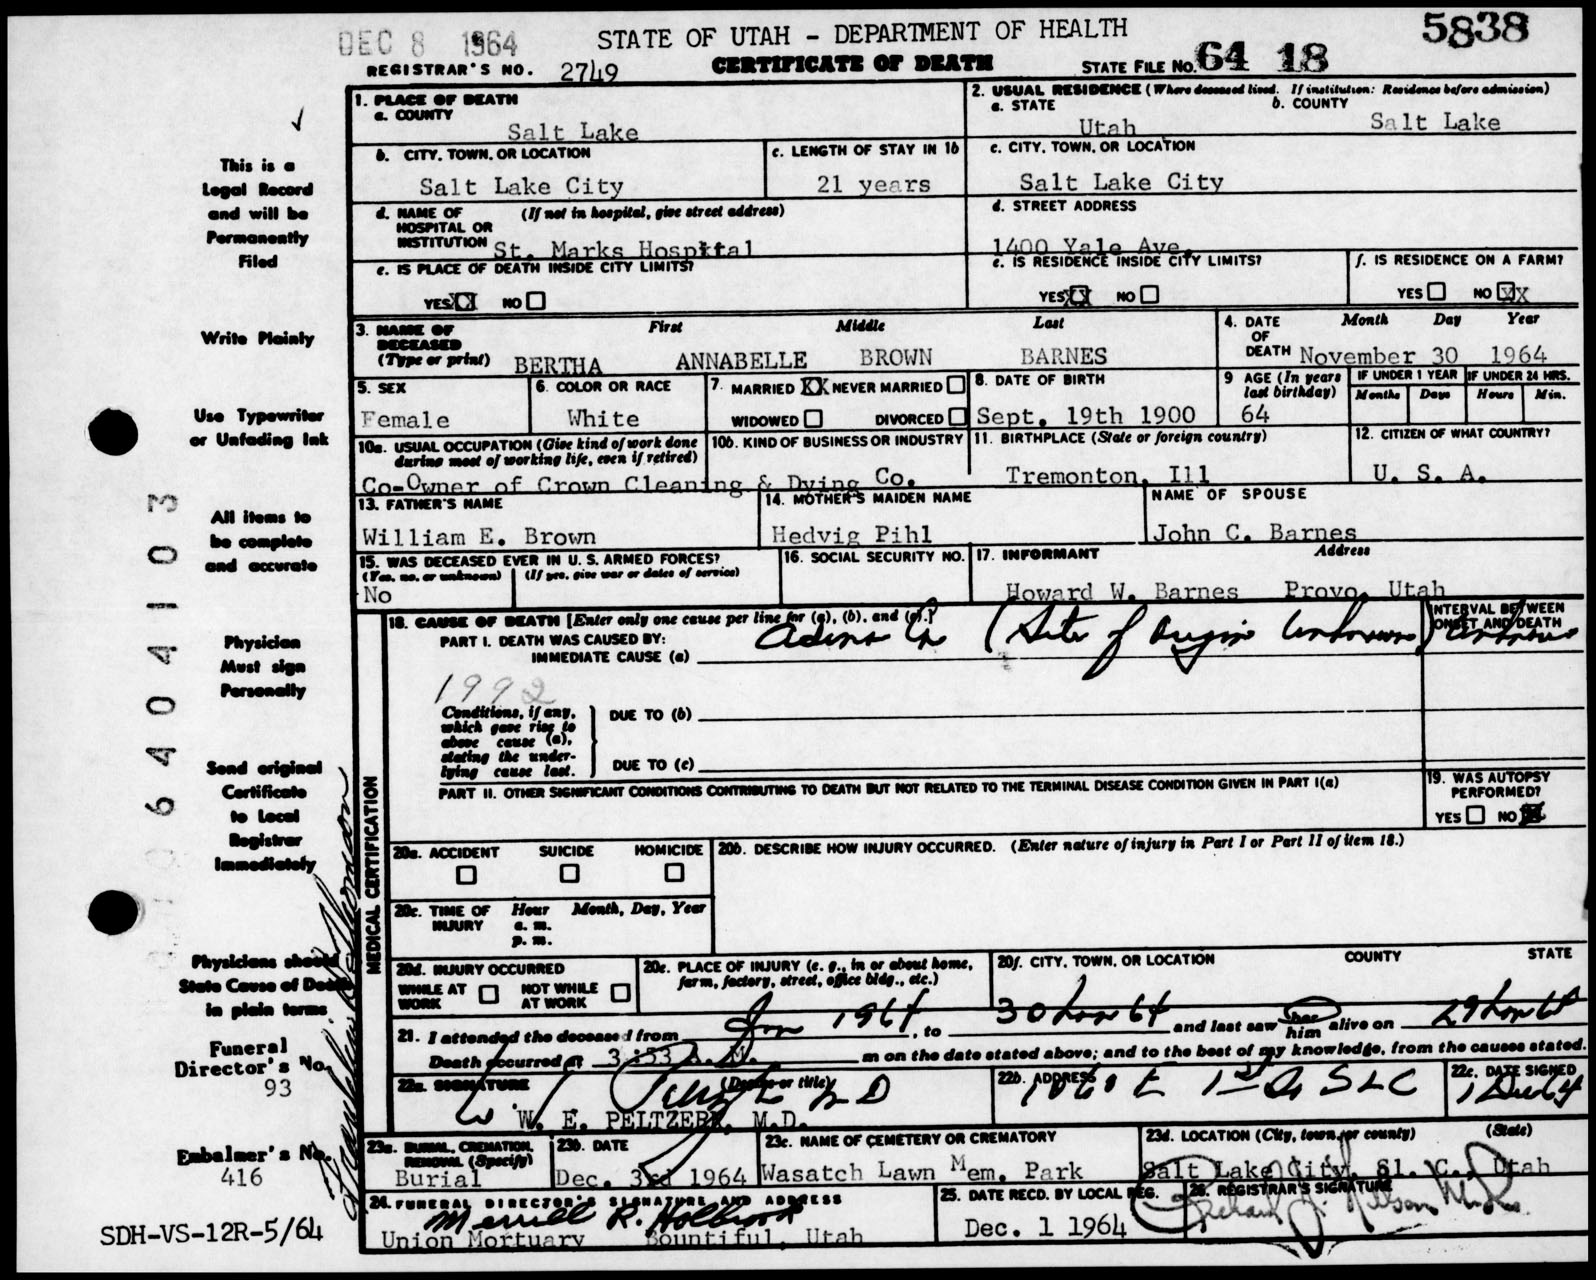 DEC 8 1964
STATE OF UTAH - DEPARTMENT OF HEALTH
5838
REGISTRAR'S NO. 2749
CERTIFICATE OF DEATH
STATE FILE NO. 64 18
1. PLACE OF DEATH
a. COUNTY
Salt Lake
2. USUAL RESIDENCE (Where deceased lived. If institution: Residence before admission)
a. STATE
Utah
b. COUNTY
Salt Lake
b. CITY, TOWN, OR LOCATION
Salt Lake City
c. LENGTH OF STAY IN 1b
21 years
c. CITY, TOWN, OR LOCATION
Salt Lake City
d. NAME OF (If not in hospital, give street address)
HOSPITAL OR
INSTITUTION St. Marks Hospital
d. STREET ADDRESS
1400 Yale Ave.
e. IS PLACE OF DEATH INSIDE CITY LIMITS?
YES XX NO
e. IS RESIDENCE INSIDE CITY LIMITS?
YES XX NO
f. IS RESIDENCE ON A FARM?
YES NO XX
3. NAME OF
DECEASED
(Type or print)
First Middle Last
BERTHA ANNABELLE BROWN BARNES
4. DATE
OF
DEATH
Month Day Year
November 30 1964
5. SEX
Female
6. COLOR OR RACE
White
7. MARRIED XX NEVER MARRIED
WIDOWED DIVORCED
8. DATE OF BIRTH
Sept. 19th 1900
9 AGE (In years
last birthday)
64
IF UNDER 1 YEAR
Months Days
IF UNDER 24 HRS.
Hours Min.
10a. USUAL OCCUPATION (Give kind of work done
during most of working life, even if retired)
10b. KIND OF BUSINESS OR INDUSTRY
Co-Owner of Crown Cleaning & Dying Co.
11. BIRTHPLACE (State or foreign country)
Tremonton, Ill
12. CITIZEN OF WHAT COUNTRY?
U. S. A.
13. FATHER'S NAME
William E. Brown
14. MOTHER'S MAIDEN NAME
Hedvig Pihl
NAME OF SPOUSE
John C. Barnes
15. WAS DECEASED EVER IN U. S. ARMED FORCES?
(Yes, no, or unknown) (If yes, give war or dates of service)
No
16. SOCIAL SECURITY NO.
17. INFORMANT Address
Howard W. Barnes Provo, Utah
MEDICAL CERTIFICATION
18. CAUSE OF DEATH [Enter only one cause per line for (a), (b), and (c).]
PART I. DEATH WAS CAUSED BY:
IMMEDIATE CAUSE (a)
Adeno Ca (Site of Origin Unknown)
INTERVAL BETWEEN
ONSET AND DEATH
Unknown
1992
Conditions, if any,
which gave rise to
above cause (a),
stating the under-
lying cause last.
DUE TO (b)
DUE TO (c)
PART II. OTHER SIGNIFICANT CONDITIONS CONTRIBUTING TO DEATH BUT NOT RELATED TO THE TERMINAL DISEASE CONDITION GIVEN IN PART I(a)
19. WAS AUTOPSY
PERFORMED?
YES NO X
20a. ACCIDENT SUICIDE HOMICIDE
20b. DESCRIBE HOW INJURY OCCURRED. (Enter nature of injury in Part I or Part II of item 18.)
20c. TIME OF
INJURY
Hour Month, Day, Year
a. m.
p. m.
20d. INJURY OCCURRED
WHILE AT
WORK
NOT WHILE
AT WORK
20e. PLACE OF INJURY (e. g., in or about home,
farm, factory, street, office bldg., etc.)
20f. CITY, TOWN, OR LOCATION COUNTY STATE
21. I attended the deceased from Jan 1964, to 30 Nov 64 and last saw her him alive on 29 Nov 64
Death occurred at 3:53 M. m on the date stated above; and to the best of my knowledge, from the causes stated.
22a. SIGNATURE (Degree or title)
MD
W. E. PELTZER, M.D.
22b. ADDRESS
1060 E 1st So SLC
22c. DATE SIGNED
1 Dec 64
23a. BURIAL, CREMATION,
REMOVAL (Specify)
Burial
23b. DATE
Dec. 3rd 1964
23c. NAME OF CEMETERY OR CREMATORY
Wasatch Lawn Mem. Park
23d. LOCATION (City, town, or county) (State)
Salt Lake City, Sl. C. Utah
24. FUNERAL DIRECTOR'S SIGNATURE AND ADDRESS
Merrill R. Holbrook
Union Mortuary Bountiful, Utah
25. DATE RECD. BY LOCAL REG.
Dec. 1 1964
26. REGISTRAR'S SIGNATURE
This is a
Legal Record
and will be
Permanently
Filed
Write Plainly
Use Typewriter
or Unfading Ink
All items to
be complete
and accurate
Physician
Must sign
Personally
Send original
Certificate
to Local
Registrar
Immediately
Physicians should
State Cause of Death
in plain terms
Funeral
Director's No.
93
Embalmer's No.
416
SDH-VS-12R-5/64
6404103